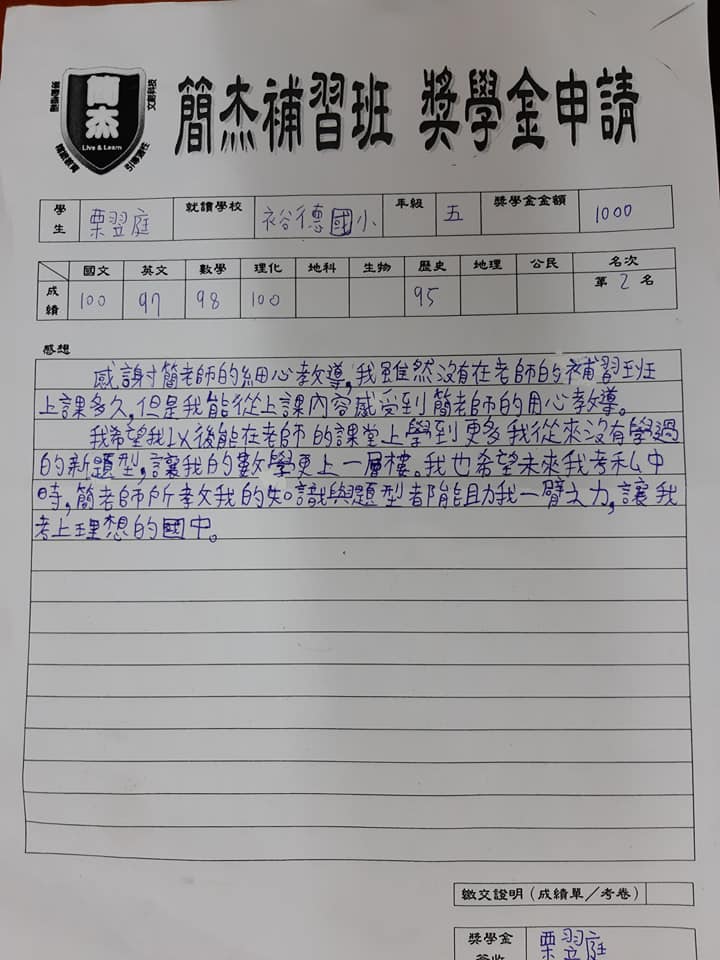 簡杰
Live & Learn
簡杰補習班 獎學金申請
學生 栗翌庭 就讀學校 裕德國小 年級 五 獎學金金額 1000
國文 英文 數學 理化 地科 生物 歷史 地理 公民 名次
成績 100 97 98 100 95 第 2 名
感想
感謝簡老師的細心教導,我雖然沒有在老師的補習班
上課多久,但是我能從上課內容感受到簡老師的用心教導。
我希望我以後能在老師的課堂上學到更多我從來沒有學過
的新題型,讓我的數學更上一層樓。我也希望未來我考私中
時,簡老師所教我的知識與題型都能助我一臂之力,讓我
考上理想的國中。
繳交證明(成績單/考卷)
獎學金 栗翌庭
簽收